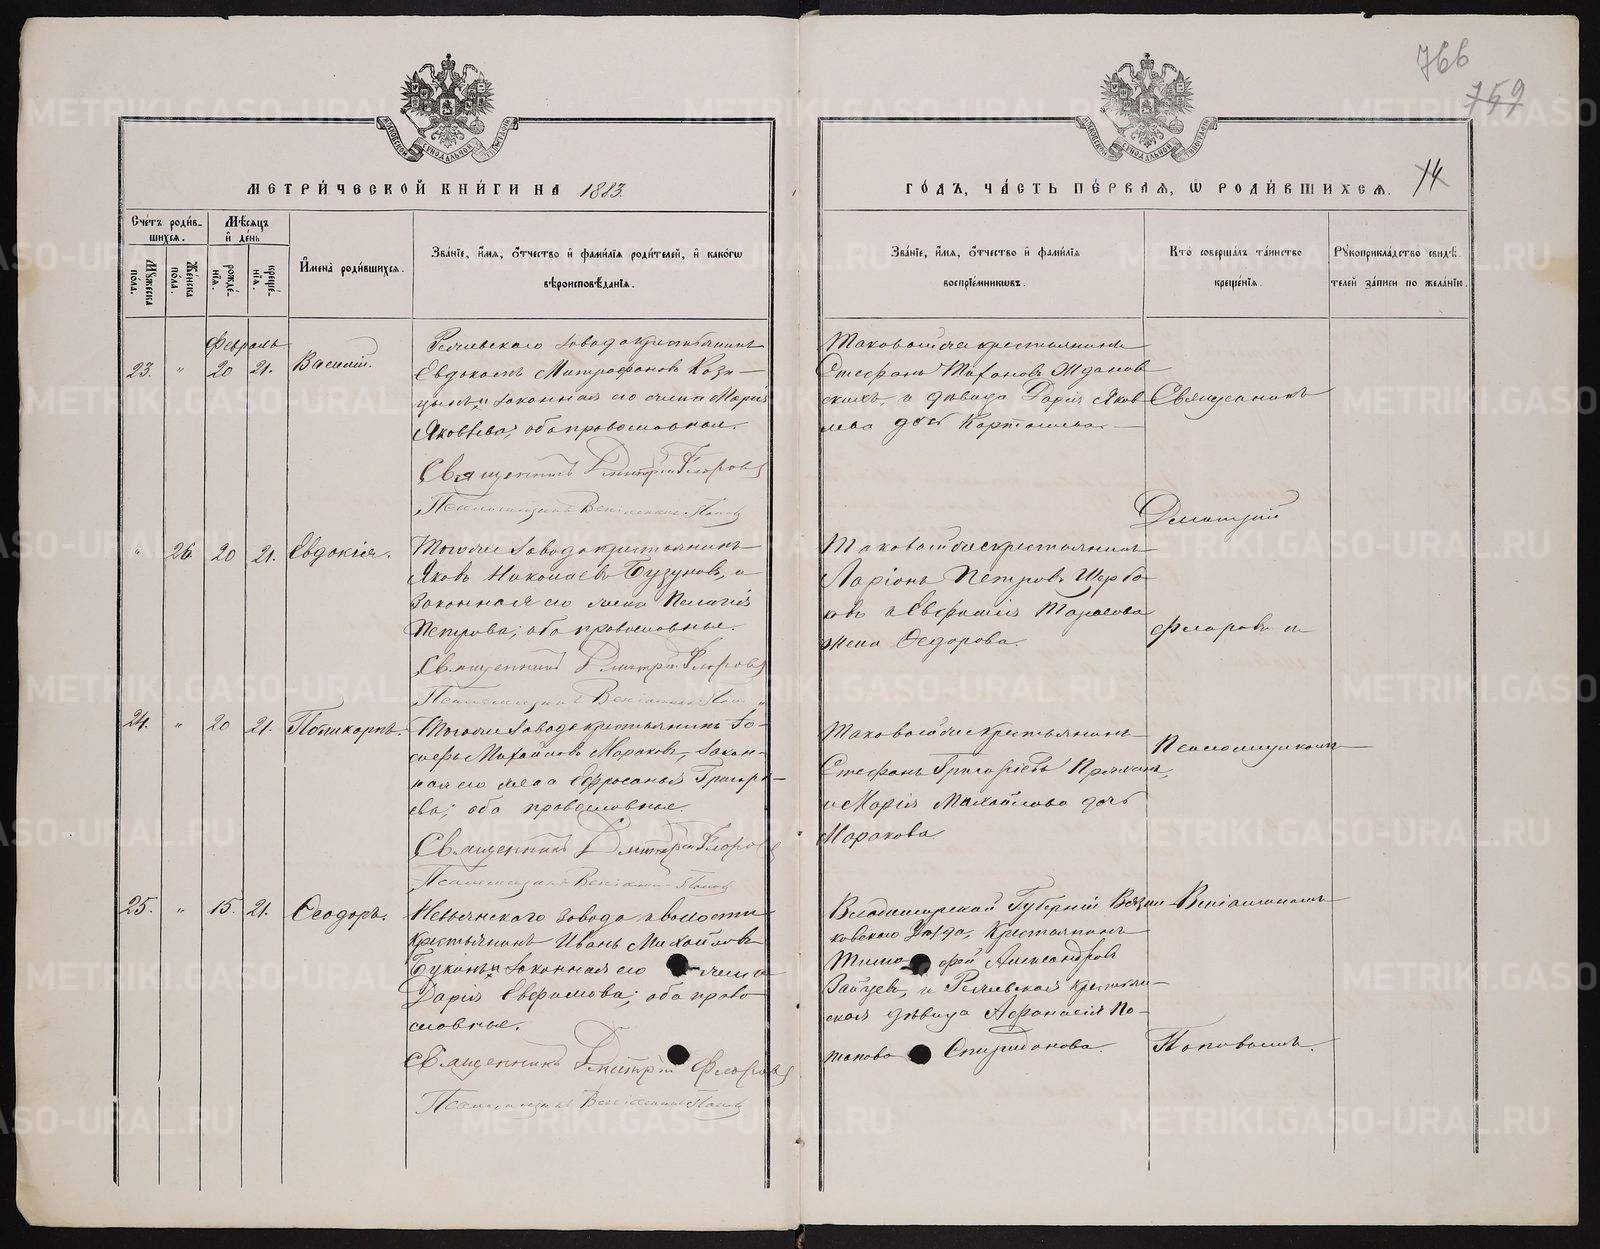 766
759
МЕТРИ́ЧЕСКОЙ КНИ́ГИ НА 1883.
ГО́ДЪ, ЧА́СТЬ ПЕ́РВАЯ, Ѡ РОДИ́ВШИХСЯ. 14
Сче́тъ роди́в-
шихся.
Му́жеска пола.
Же́нска пола.
Мѣсяцъ
и҆ де́нь
рожде́-
нїя.
креще́-
нїя.
И҆мена̀ роди́вшихся.
Зва́нїе, и҆́мя, ѻ҆́тчество и҆ фами́лїя роди́телей, и҆ како́гѡ
вѣроисповѣ́данїя.
Зва́нїе, и҆́мя, ѻ҆́тчество и҆ фами́лїя
воспрїе́мникѡвъ.
Кто̀ соверша́лъ та́инство
креще́нїя.
Рꙋкоприкла́дство свидѣ́-
телей за́писи по жела́нїю.
Февраль
23. " 20 21. Василій.
Режевскаго завода крестьянинъ
Евдокимъ Митрофановъ Кози-
цынъ, и законная его жена Марія
Яковлева; оба православные.
Священникъ Дмитрій Флоровъ
Псаломщикъ Веніаминъ Поповъ
Таковойже крестьянинъ
Стефанъ
и дѣвица Дарія Яков
лева дочь Карташева.
Священникъ
Дмитрій
" 26. 20 21. Евдокія.
Тогоже завода крестьянинъ
Яковъ Николаевъ Бузуновъ, и
законная его жена Пелагія
Петрова; оба православные.
Священникъ Дмитрій Флоровъ
Псаломщикъ Веніаминъ Поп
Таковойже крестьянинъ
Ларіонъ Петровъ Щерба-
ковъ и Евфимія Тарасова
жена Ѳедорова.
Флоровъ и
24. " 20 21. Поликарпъ.
Тогоже завода крестьянинъ Іо-
сифъ Михайловъ Мараковъ, закон-
ная его жена Евфросинья Григорь-
ева; оба православные.
Священникъ Дмитрій Флоровъ
Псаломщикъ Веніаминъ Поповъ
Таковойже крестьянинъ
Стефанъ Григорьевъ
и Марія Михайлова дочь
Маракова
Псаломщикомъ
25. " 15. 21. Ѳеодоръ.
Невьянскаго завода и волости
крестьянинъ Иванъ Михайловъ
законная его жена
Дарія Евфимова; оба право-
славные.
Священникъ Дмитрій Флоровъ
Псаломщикъ Веніаминъ Поповъ
Владимірской Губерніи Вязни-
ковскаго уѣзда, крестьянинъ
Тимофей Александровъ
Зайцевъ, и Режевская крестьян-
ская дѣвица Афанасія По-
тапова Спиридонова.
Веніаминомъ
Поповымъ.
METRIKI.GASO-URAL.RU